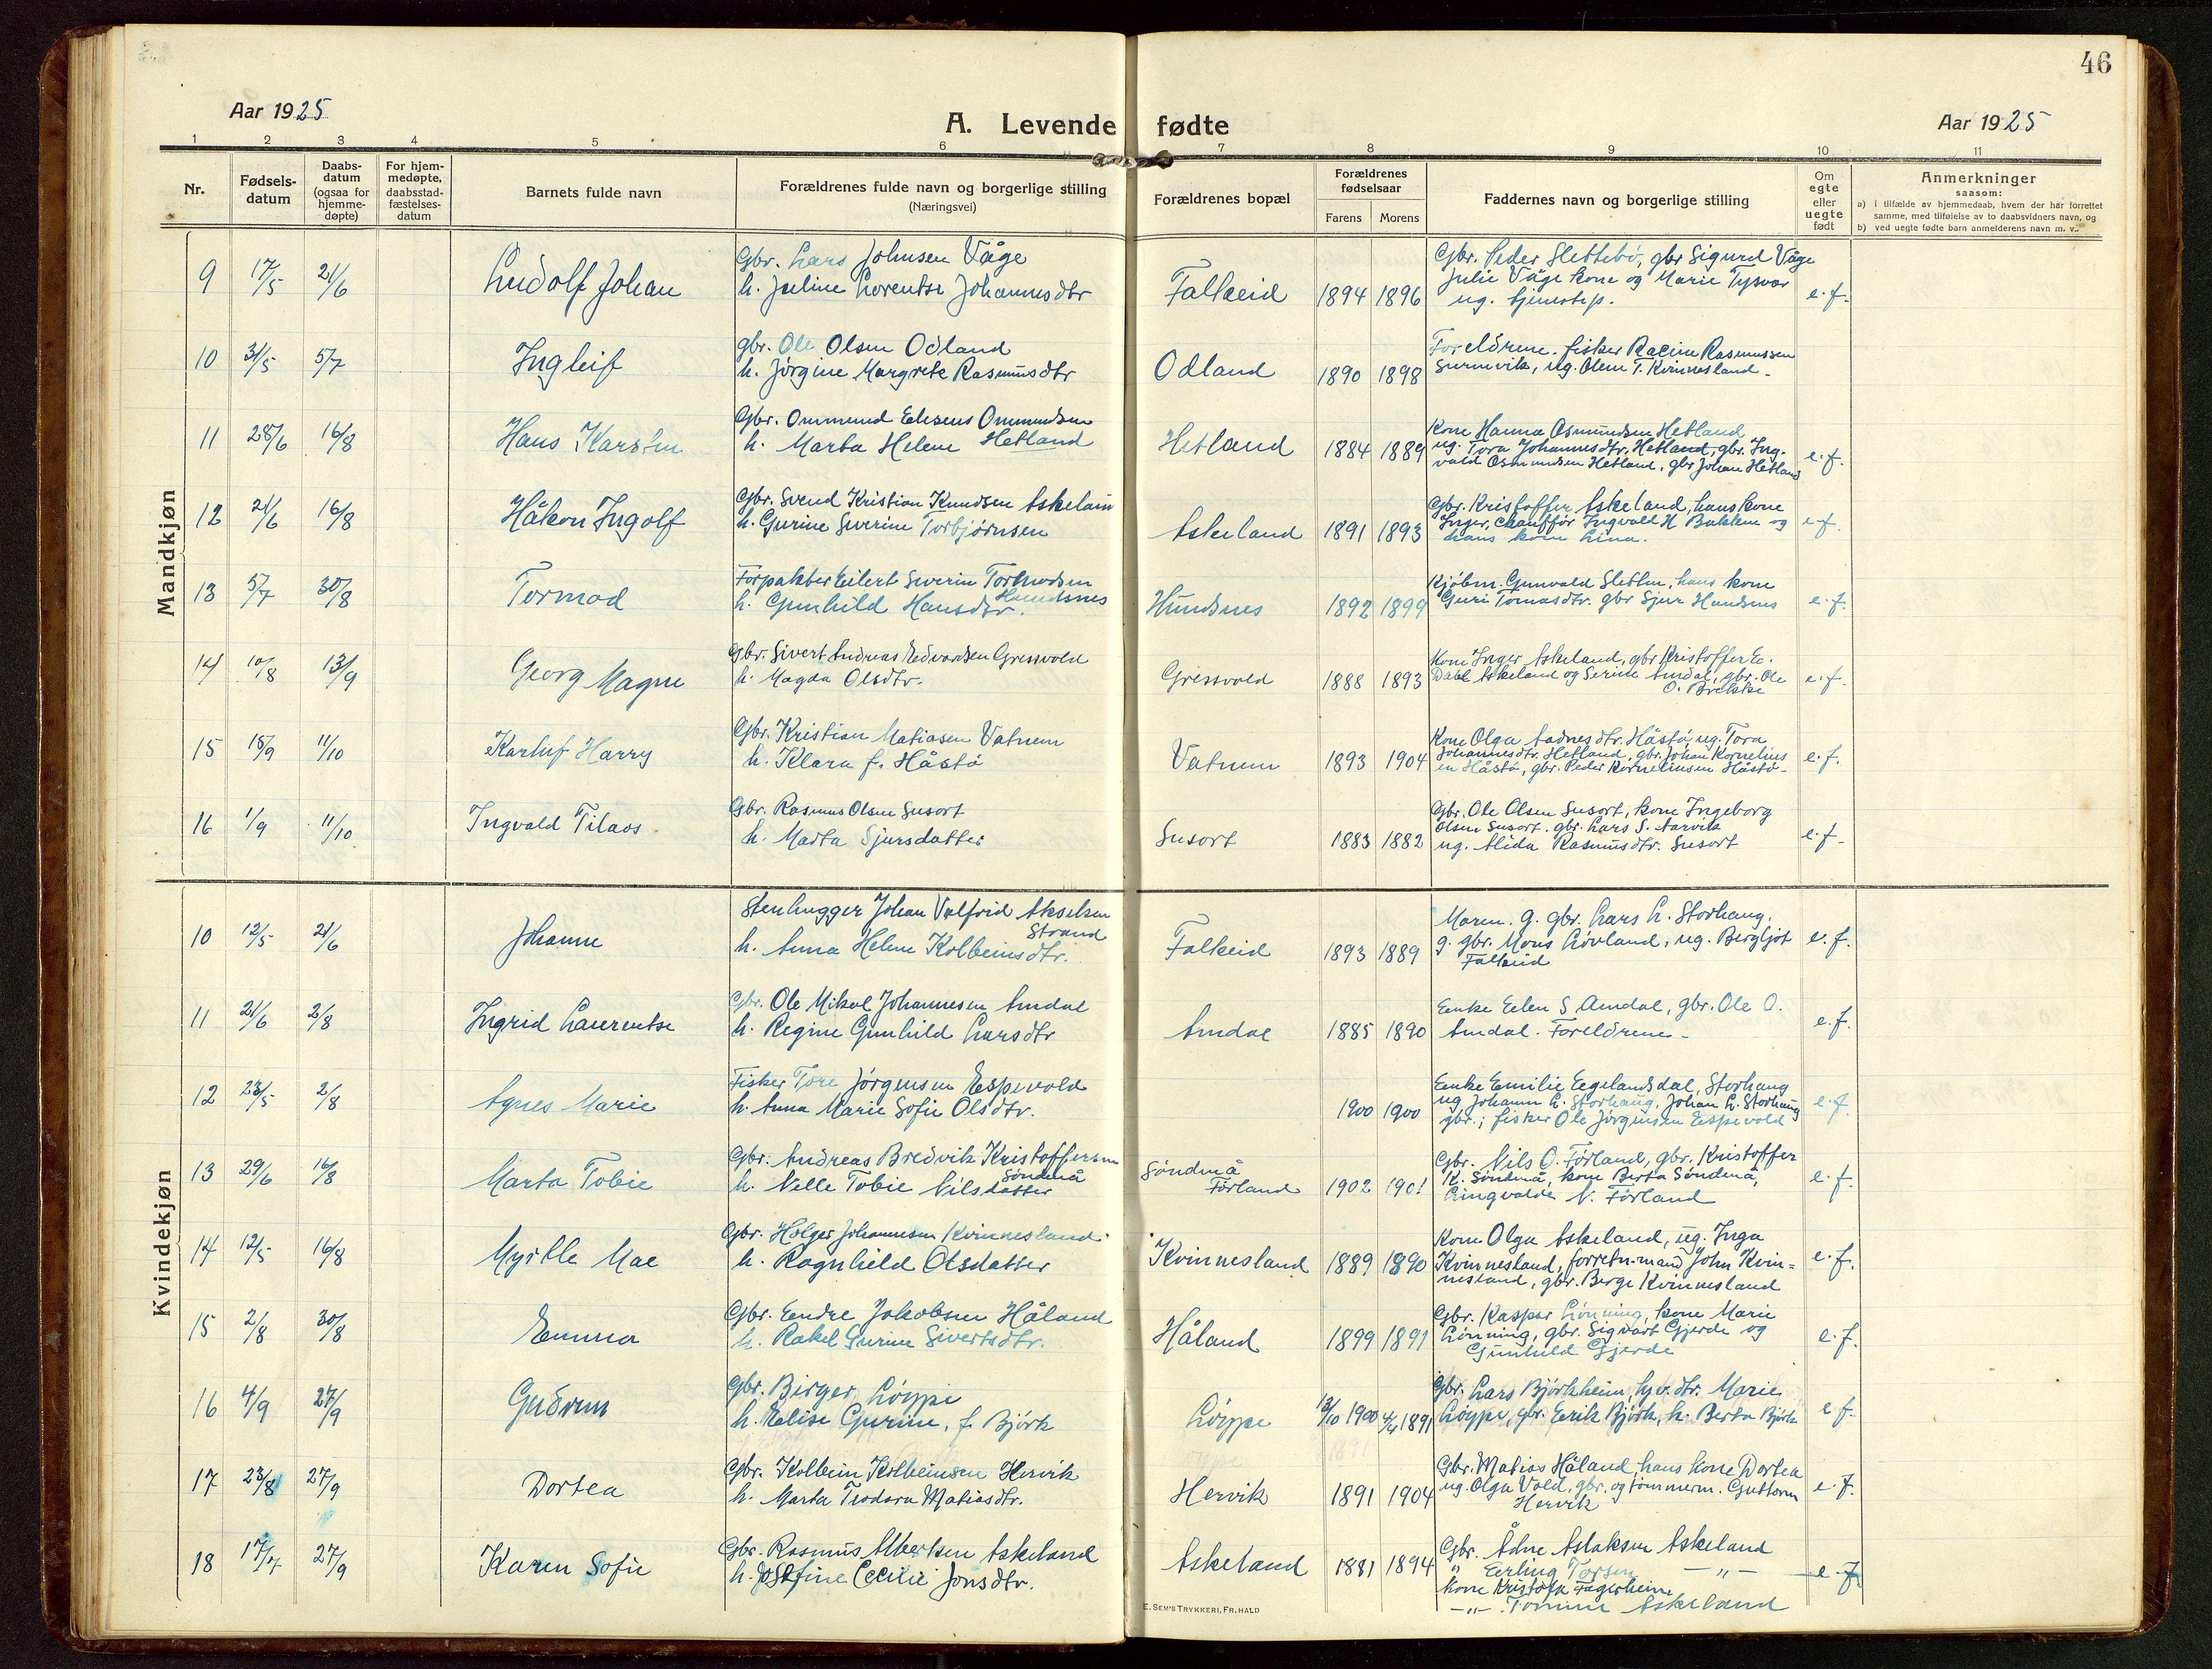 46
Aar 1925
A. Levende fødte
Aar 1925
1 2 3 4 5 6 7 8 9 10 11
Nr.
Fødsels-
datum
Daabs-
datum
(ogsaa for
hjemme-
døpte)
For hjem-
medøpte,
daabsstad-
fæstelses-
datum
Barnets fulde navn
Forældrenes fulde navn og borgerlige stilling
(Næringsvei)
Forældrenes bopæl
Forældrenes
fødselsaar
Farens Morens
Faddernes navn og borgerlige stilling
Om
egte
eller
uegte
født
Anmerkninger
saasom:
a) i tilfælde av hjemmedaab, hvem der har forrettet
samme, med tilføielse av to daabsvidners navn, og
b) ved uegte fødte barn anmelderens navn m. v.
Mandkjøn
9 17/5 21/6 Ludolf Johan
Gbr. Lars Johnsen Våge
h. Juline Lorentse Johannesdtr
Falkeid 1894 1896
Gbr. Peder Slettebø, gbr Sigurd Våge
Julie Våge kone og Marie Tysvær
ug. tjenestep.
e.f.
10 31/5 5/7 Ingleif
gbr. Ole Olsen Odland
h. Jørgine Margrete Rasmusdtr
Odland 1890 1898
Foreldrene. fisker Racine Rasmussen
ug. Olene T. Kvinnesland
11 28/6 16/8 Hans Karsten
Gbr. Ommund Ommundsen
h. Marta Helene Hetland
Hetland 1884 1889
Kone Hanna Osmundsen Hetland
ug. Tora Johannesdtr. Hetland, gbr. Ing-
vald Osmundsen Hetland, gbr Johan Hetland
e.f.
12 21/6 16/8 Håkon Ingolf
Gbr. Svend Kristian Knudsen Askeland
h. Gurine Severine Torbjørnsen
Askeland 1891 1893
Gbr. Kristoffer Askeland, hans kone
Inger, chauffør Ingvald H Bakken og
hans kone Lina.
e.f.
13 5/7 30/8 Tormod
Forpakter Eilert Severin Tormodsen
Hundsnes
h. Gunhild Hansdtr.
Hundsnes 1892 1899
Kjøbm. Gunvald Sletten, hans kone
Guri Tomasdtr. gbr Sjur Hundsnes
e.f.
14 10/8 13/9 Georg Magne
Gbr. Sivert Andreas Edvardsen Gressvold
h. Magda Olsdtr.
Gressvold 1888 1893
Kone Inger Askeland, gbr Kristoffer E.
Dahl Askeland og Serine Amdal, gbr. Ole
O. Brekke
e.f.
15 15/9 11/10 Karluf Harry
Gbr. Kristian Matiasen Vatnem
h. Klara f. Håstø
Vatnem 1893 1904
Kone Olga Aadnesdtr. Håstø ug. Tora
Johannesdtr. Hetland, gbr. Johan Kornelius
en Håstø, gbr. Peder Korneliusen Håstø
e.f.
16 1/9 11/10 Ingvald Tilaos
Gbr. Rasmus Olsen Susort
h. Marta Sjursdatter
Susort 1883 1882
Gbr. Ole Olsen Susort, kone Ingeborg
Olsen Susort. gbr. Lars S. Aarvik
ug. Alida Rasmusdtr. Susort
e.f.
Kvindekjøn
10 12/5 21/6 Johanne
Stenhugger Johan Valfrid Akselsen
Strand
h. Anna Helene Kolbeinsdtr.
Falkeid 1893 1889
Maren. g. gbr. Lars L. Storhaug.
g. gbr. Mons Løvland, ug. Bergljot
Falkeid
e.f.
11 21/6 2/8 Ingrid Laurentse
Gbr. Ole Mikal Johannesen Amdal
h. Regine Gunhild Larsdtr
Amdal 1885 1890
Enke Elen S Amdal, gbr. Ole O.
Amdal. Foreldrene
e.f.
12 23/5 2/8 Agnes Marie
Fisker Tore Jørgensen Espevold
h. Anna Marie Sofie Olsdtr.
1900 1900
Enke Emilie Eegelandsdal, Storhaug
ug Johanne L. Storhaug, Johan L. Storhaug
gbr.; fisker Ole Jørgensen Espevold
e.f.
13 29/6 16/8 Marta Tobie
Gbr. Andreas Bredvik Kristoffersen
Søndmå
h. Nelle Tobie Nilsdatter
Søndmå
Førland 1902 1901
Gbr. Nils O. Førland, gbr. Kristoffer
K. Søndmå, kone Berta Søndmå,
N. Førland
e.f.
14 12/5 16/8 Myrtle Mae
Gbr. Holger Johannesen Kvinnesland
h. Ragnhild Olsdatter
Kvinnesland 1889 1890
Kone Olga Askeland, ug. Inga
Kvinnesland, forretn.mand John Kvin=
nesland, gbr. Berge Kvinnesland
e.f.
15 2/8 30/8 Emma
Gbr. Endre Jakobsen Håland
h. Rakel Gurine Sivertsdtr.
Håland 1899 1891
Gbr. Kaspar Lønning, kone Marie
Lønning, gbr. Sigvart Gjerde og
Gunhild Gjerde
e.f.
16 4/9 27/9 Gudrun
Gbr. Birger Løyppe
h. Elise Gurine, f. Bjørk
Løyppe 13/10 1900 4/4 1891
Gbr. Lars Bjørkheim, hjv. dtr. Marie
Løyppe, gbr. Erik Bjørk, h. Berta Bjørk
e.f.
17 23/8 27/9 Dortea
Gbr. Kolbein Kolbeinsen Hervik
h. Marta Teodora Matiasdtr.
Hervik 1891 1904
Gbr. Matias Håland, hans kone Dortea
ug. Olga Vold, gbr. og tømmerm. Guttorm
Hervik
e.f.
18 17/7 27/9 Karen Sofie
Gbr. Rasmus Albertsen Askeland
h. Josefine Cecilie Jonsdtr.
Askeland 1881 1894
Gbr. Ådne Aslaksen Askeland
" Erling Torsen —"—
kone Kristofa Fagerheim
—"— Tomine Askeland
e.f.
E. SEM'S TRYKKERI, FR. HALD